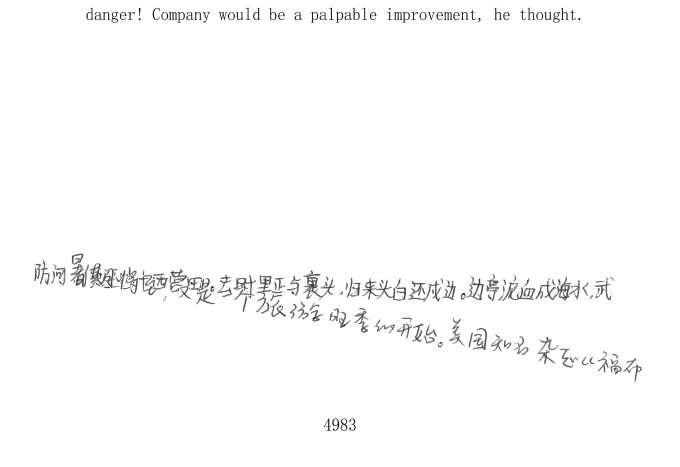 danger! Company would be a palpable improvement, he thought.
防河 西营田。去时里正与裹头,归来头白还戍边。边亭流血成海水,武
暑假 ,又是一个旅游旺季的开始。美国知名杂志《福布
4983